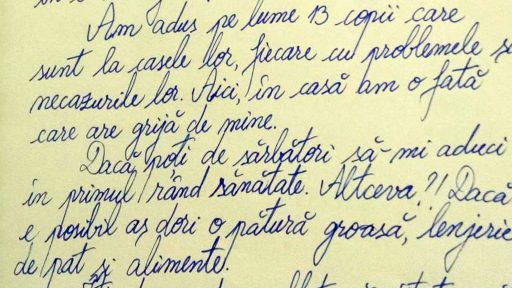 Am adus pe lume 13 copii care
sunt la casele lor, fiecare cu problemele și
necazurile lor. Aici, în casă am o fată
care are grijă de mine.
Dacă poți de sărbători să-mi aduci
în primul rând sănătate. Altceva?! Dacă
e posibil aș dori o pătură groasă, lenjerie
de pat și alimente.